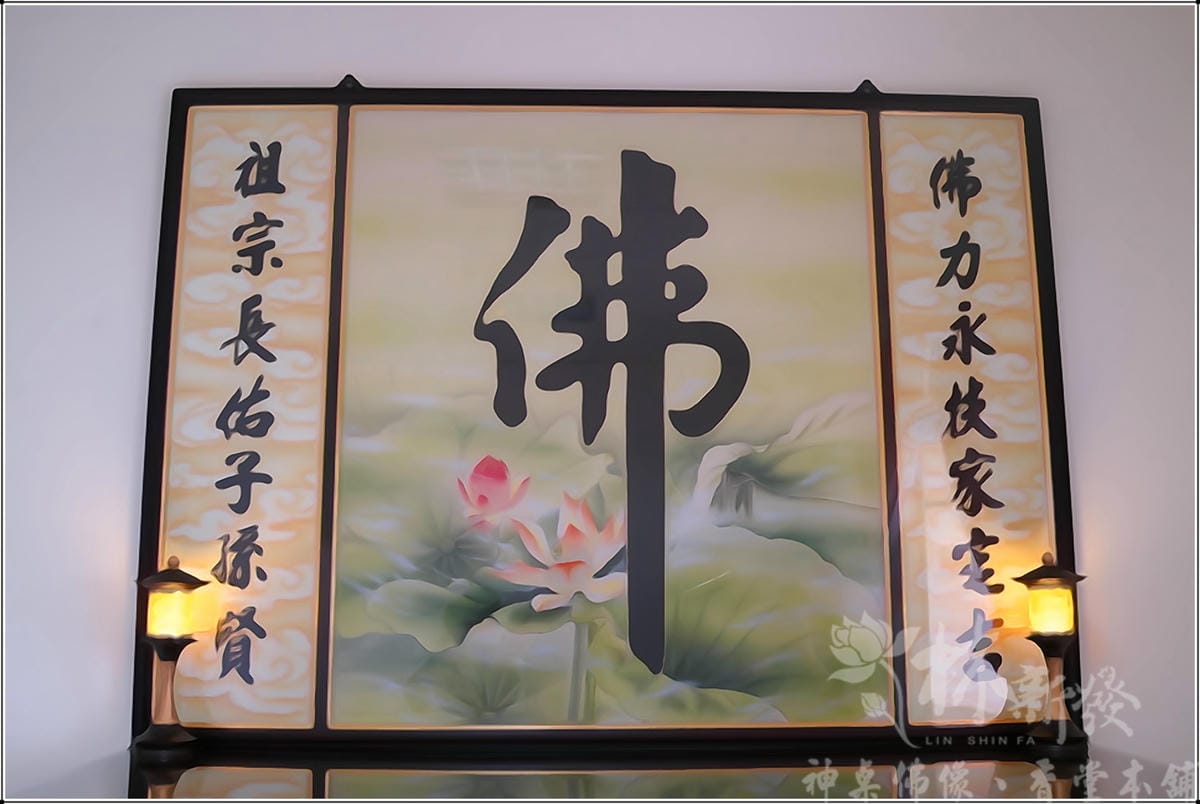 佛
佛力永扶家宅吉
祖宗長佑子孫賢
林新發
LIN SHIN FA
神桌佛像、香堂本舖